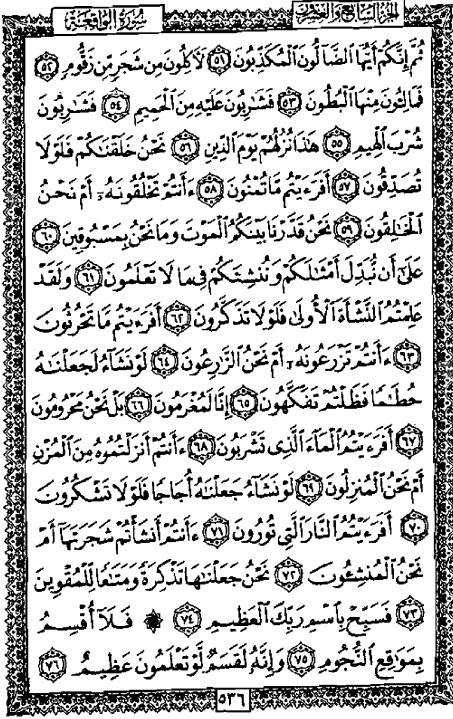 سورة الواقعة الجزء السابع والعشرون
ثُمَّ إِنَّكُمْ أَيُّهَا ٱلضَّآلُّونَ ٱلْمُكَذِّبُونَ ٥١ لَآكِلُونَ مِن شَجَرٍ مِّن زَقُّومٍ ٥٢
فَمَالِـُٔونَ مِنْهَا ٱلْبُطُونَ ٥٣ فَشَـٰرِبُونَ عَلَيْهِ مِنَ ٱلْحَمِيمِ ٥٤ فَشَـٰرِبُونَ
شُرْبَ ٱلْهِيمِ ٥٥ هَـٰذَا نُزُلُهُمْ يَوْمَ ٱلدِّينِ ٥٦ نَحْنُ خَلَقْنَـٰكُمْ فَلَوْلَا
تُصَدِّقُونَ ٥٧ أَفَرَءَيْتُم مَّا تُمْنُونَ ٥٨ ءَأَنتُمْ تَخْلُقُونَهُۥٓ أَمْ نَحْنُ
ٱلْخَـٰلِقُونَ ٥٩ نَحْنُ قَدَّرْنَا بَيْنَكُمُ ٱلْمَوْتَ وَمَا نَحْنُ بِمَسْبُوقِينَ ٦٠
عَلَىٰٓ أَن نُّبَدِّلَ أَمْثَـٰلَكُمْ وَنُنشِئَكُمْ فِى مَا لَا تَعْلَمُونَ ٦١ وَلَقَدْ
عَلِمْتُمُ ٱلنَّشْأَةَ ٱلْأُولَىٰ فَلَوْلَا تَذَكَّرُونَ ٦٢ أَفَرَءَيْتُم مَّا تَحْرُثُونَ
٦٣ ءَأَنتُمْ تَزْرَعُونَهُۥٓ أَمْ نَحْنُ ٱلزَّٰرِعُونَ ٦٤ لَوْ نَشَآءُ لَجَعَلْنَـٰهُ
حُطَـٰمًا فَظَلْتُمْ تَفَكَّهُونَ ٦٥ إِنَّا لَمُغْرَمُونَ ٦٦ بَلْ نَحْنُ مَحْرُومُونَ
٦٧ أَفَرَءَيْتُمُ ٱلْمَآءَ ٱلَّذِى تَشْرَبُونَ ٦٨ ءَأَنتُمْ أَنزَلْتُمُوهُ مِنَ ٱلْمُزْنِ
أَمْ نَحْنُ ٱلْمُنزِلُونَ ٦٩ لَوْ نَشَآءُ جَعَلْنَـٰهُ أُجَاجًا فَلَوْلَا تَشْكُرُونَ
٧٠ أَفَرَءَيْتُمُ ٱلنَّارَ ٱلَّتِى تُورُونَ ٧١ ءَأَنتُمْ أَنشَأْتُمْ شَجَرَتَهَآ أَمْ
نَحْنُ ٱلْمُنشِـُٔونَ ٧٢ نَحْنُ جَعَلْنَـٰهَا تَذْكِرَةً وَمَتَـٰعًا لِّلْمُقْوِينَ
٧٣ فَسَبِّحْ بِٱسْمِ رَبِّكَ ٱلْعَظِيمِ ٧٤ ۞ فَلَآ أُقْسِمُ
بِمَوَٰقِعِ ٱلنُّجُومِ ٧٥ وَإِنَّهُۥ لَقَسَمٌ لَّوْ تَعْلَمُونَ عَظِيمٌ ٧٦
٥٣٦